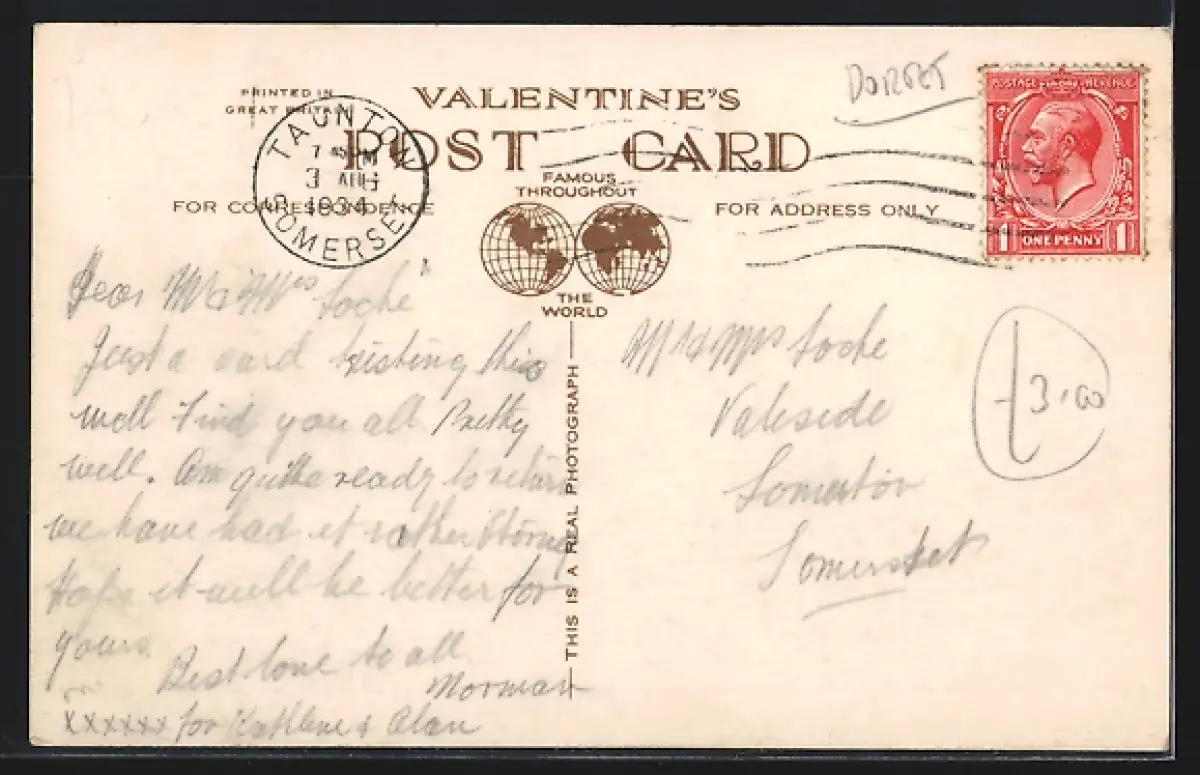 PRINTED IN
GREAT BRITAIN
VALENTINE'S
POST CARD
FAMOUS
THROUGHOUT
THE
WORLD
FOR CORRESPONDENCE
FOR ADDRESS ONLY
TAUNTON
3 AUG
1934
SOMERSET
DORSET
POSTAGE REVENUE
1 ONE PENNY 1
Dear Mr & Mrs Locke
Just a card this
will find you all Pretty
well. Am quite ready to return
we have had it rather Stormy
Hope it will be better for
yours.
Best love to all
Norman
xxxxxx for Kathleen & Alan
THIS IS A REAL PHOTOGRAPH
Mr & Mrs Locke
Valeside
Somerton
Somerset
3.00